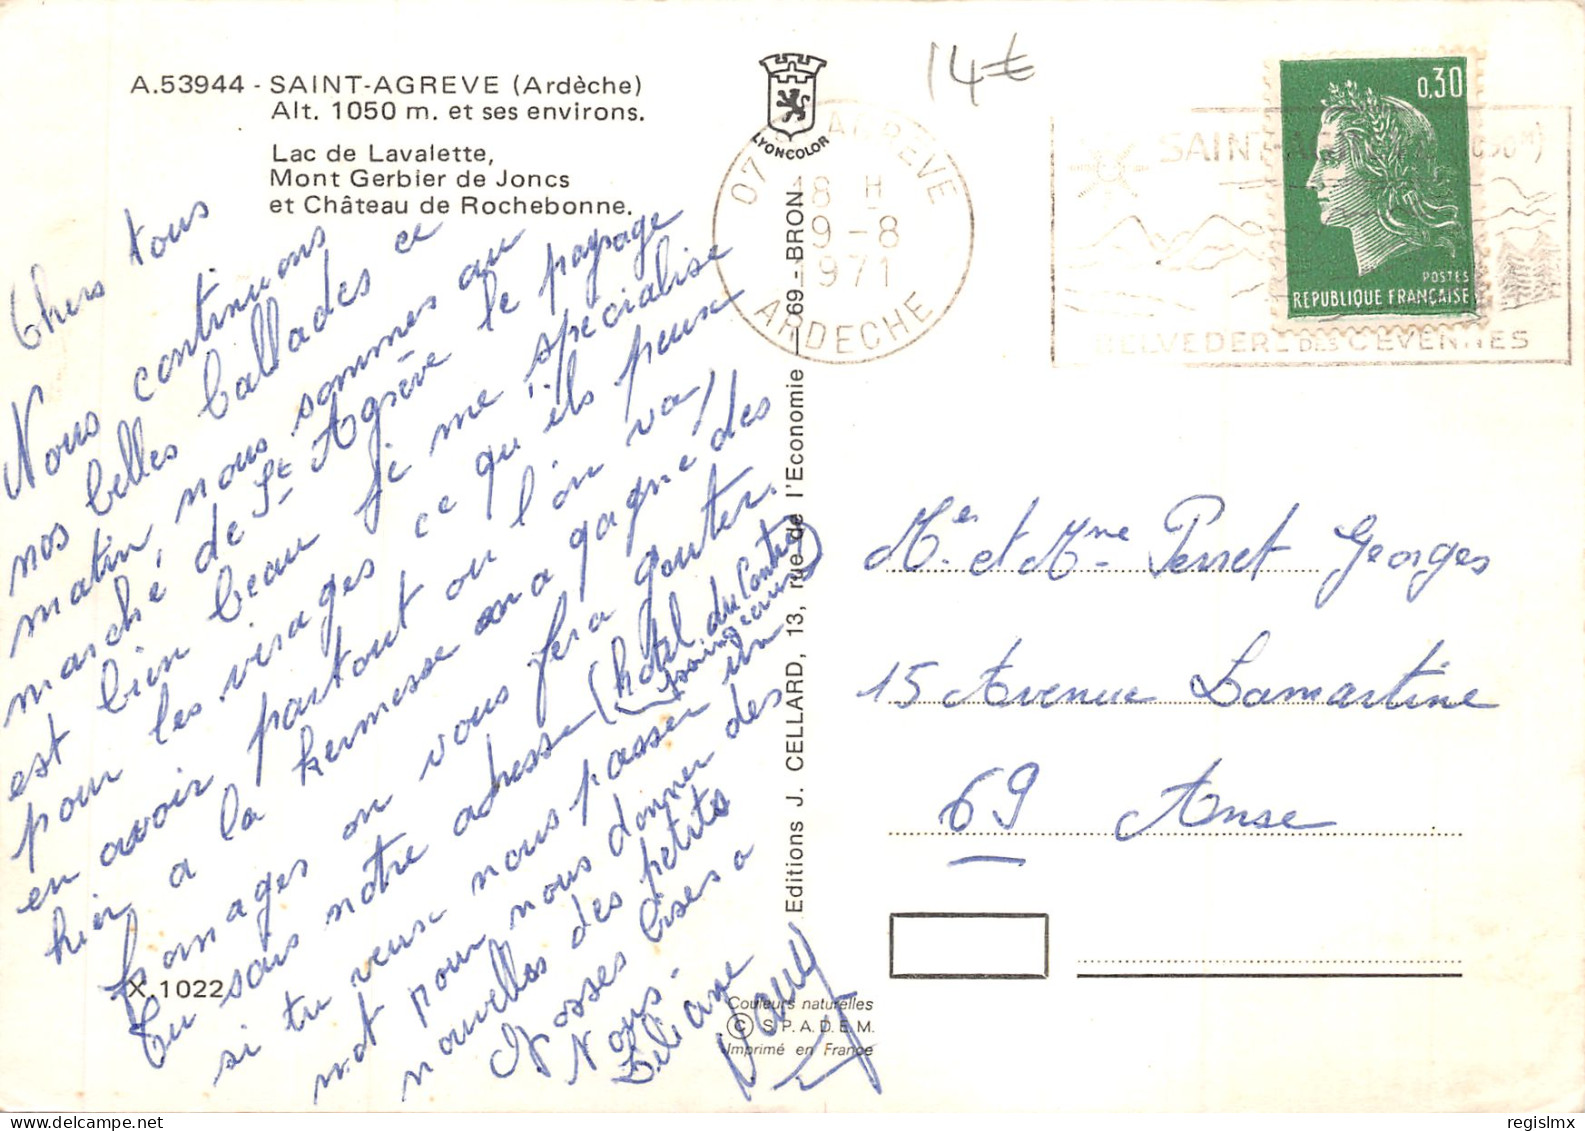 A.53944 - SAINT-AGREVE (Ardèche)
Alt. 1050 m. et ses environs.
Lac de Lavalette,
Mont Gerbier de Joncs
et Château de Rochebonne.
Chers tous
Nous continuons
nos belles ballades ce
matin, nous sommes au
marché de St Agrève le paysage
est bien beau je me spécialise
pour les virages ce qu'ils peux
en avoir partout ou l'on va,
hier a la kermesse on a gagne des
fromages on vous fera gouter.
Tu sais notre adresse (hotel du Centre
si tu veux nous passer un
mot pour nous donner des
nouvelles des petits
Grosses bises a
Vous.
Liliane
X.1022
LYONCOLOR
Editions J. CELLARD, 13, rue de l'Economie - 69 - BRON
Couleurs naturelles
© S.P.A.D.E.M.
Imprimé en France
14€
07 ST AGREVE
18 H
9-8
1971
ARDECHE
SAINT-AGREVE (1050M)
BELVEDERE DES CEVENNES
0,30
POSTES
REPUBLIQUE FRANÇAISE
Mr et Mme Perret Georges
15 Avenue Lamartine
69 Anse
regislmx